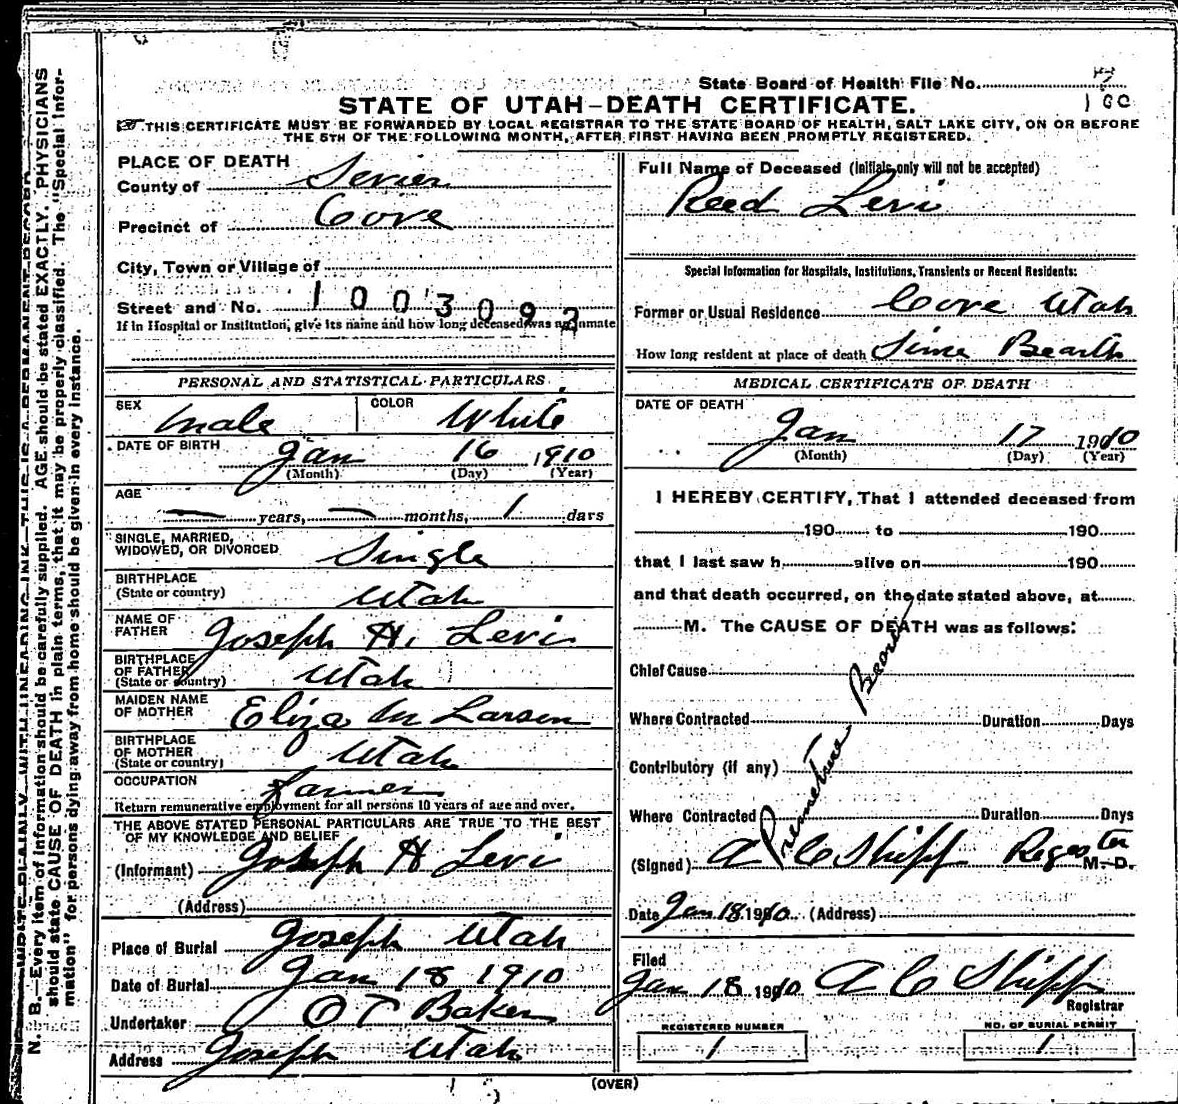 State Board of Health File No.
STATE OF UTAH—DEATH CERTIFICATE.
THIS CERTIFICATE MUST BE FORWARDED BY LOCAL REGISTRAR TO THE STATE BOARD OF HEALTH, SALT LAKE CITY, ON OR BEFORE
THE 5TH OF THE FOLLOWING MONTH, AFTER FIRST HAVING BEEN PROMPTLY REGISTERED.
PLACE OF DEATH
County of Sevier
Precinct of Cove
City, Town or Village of
Street and No. 1003092
If in Hospital or Institution, give its name and how long deceased was an inmate
PERSONAL AND STATISTICAL PARTICULARS
SEX male COLOR White
DATE OF BIRTH Jan 16 1910
(Month) (Day) (Year)
AGE
— years, — months, 1 days
SINGLE, MARRIED,
WIDOWED, OR DIVORCED Single
BIRTHPLACE
(State or country) Utah
NAME OF
FATHER Joseph H. Levi
BIRTHPLACE
OF FATHER
(State or country) Utah
MAIDEN NAME
OF MOTHER Eliza M Larsen
BIRTHPLACE
OF MOTHER
(State or country) Utah
OCCUPATION Farmer
Return remunerative employment for all persons 10 years of age and over.
THE ABOVE STATED PERSONAL PARTICULARS ARE TRUE TO THE BEST
OF MY KNOWLEDGE AND BELIEF
(Informant) Joseph H Levi
(Address)
Place of Burial Joseph Utah
Date of Burial Jan 18 1910
Undertaker O T Baker
Address Joseph Utah
Full Name of Deceased (Initials only will not be accepted)
Reed Levi
Special Information for Hospitals, Institutions, Transients or Recent Residents:
Former or Usual Residence Cove Utah
How long resident at place of death Sinse Bearth
MEDICAL CERTIFICATE OF DEATH
DATE OF DEATH
Jan 17 1910
(Month) (Day) (Year)
I HEREBY CERTIFY, That I attended deceased from
190 to 190
that I last saw h alive on 190
and that death occurred, on the date stated above, at
M. The CAUSE OF DEATH was as follows:
Chief Cause
Where Contracted Duration Days
Contributory (if any)
Where Contracted Duration Days
Premeture Bearth
(Signed) A C Shipp Regester M.D.
Date Jan 18 1910 (Address)
Filed
Jan 18 1910 A C Shipp
Registrar
REGISTERED NUMBER
1
NO. OF BURIAL PERMIT
1
(OVER)
N. B.—Every item of information should be carefully supplied. AGE should be stated EXACTLY. PHYSICIANS
should state CAUSE OF DEATH in plain terms, that it may be properly classified. The "Special Infor-
mation" for persons dying away from home should be given in every instance.